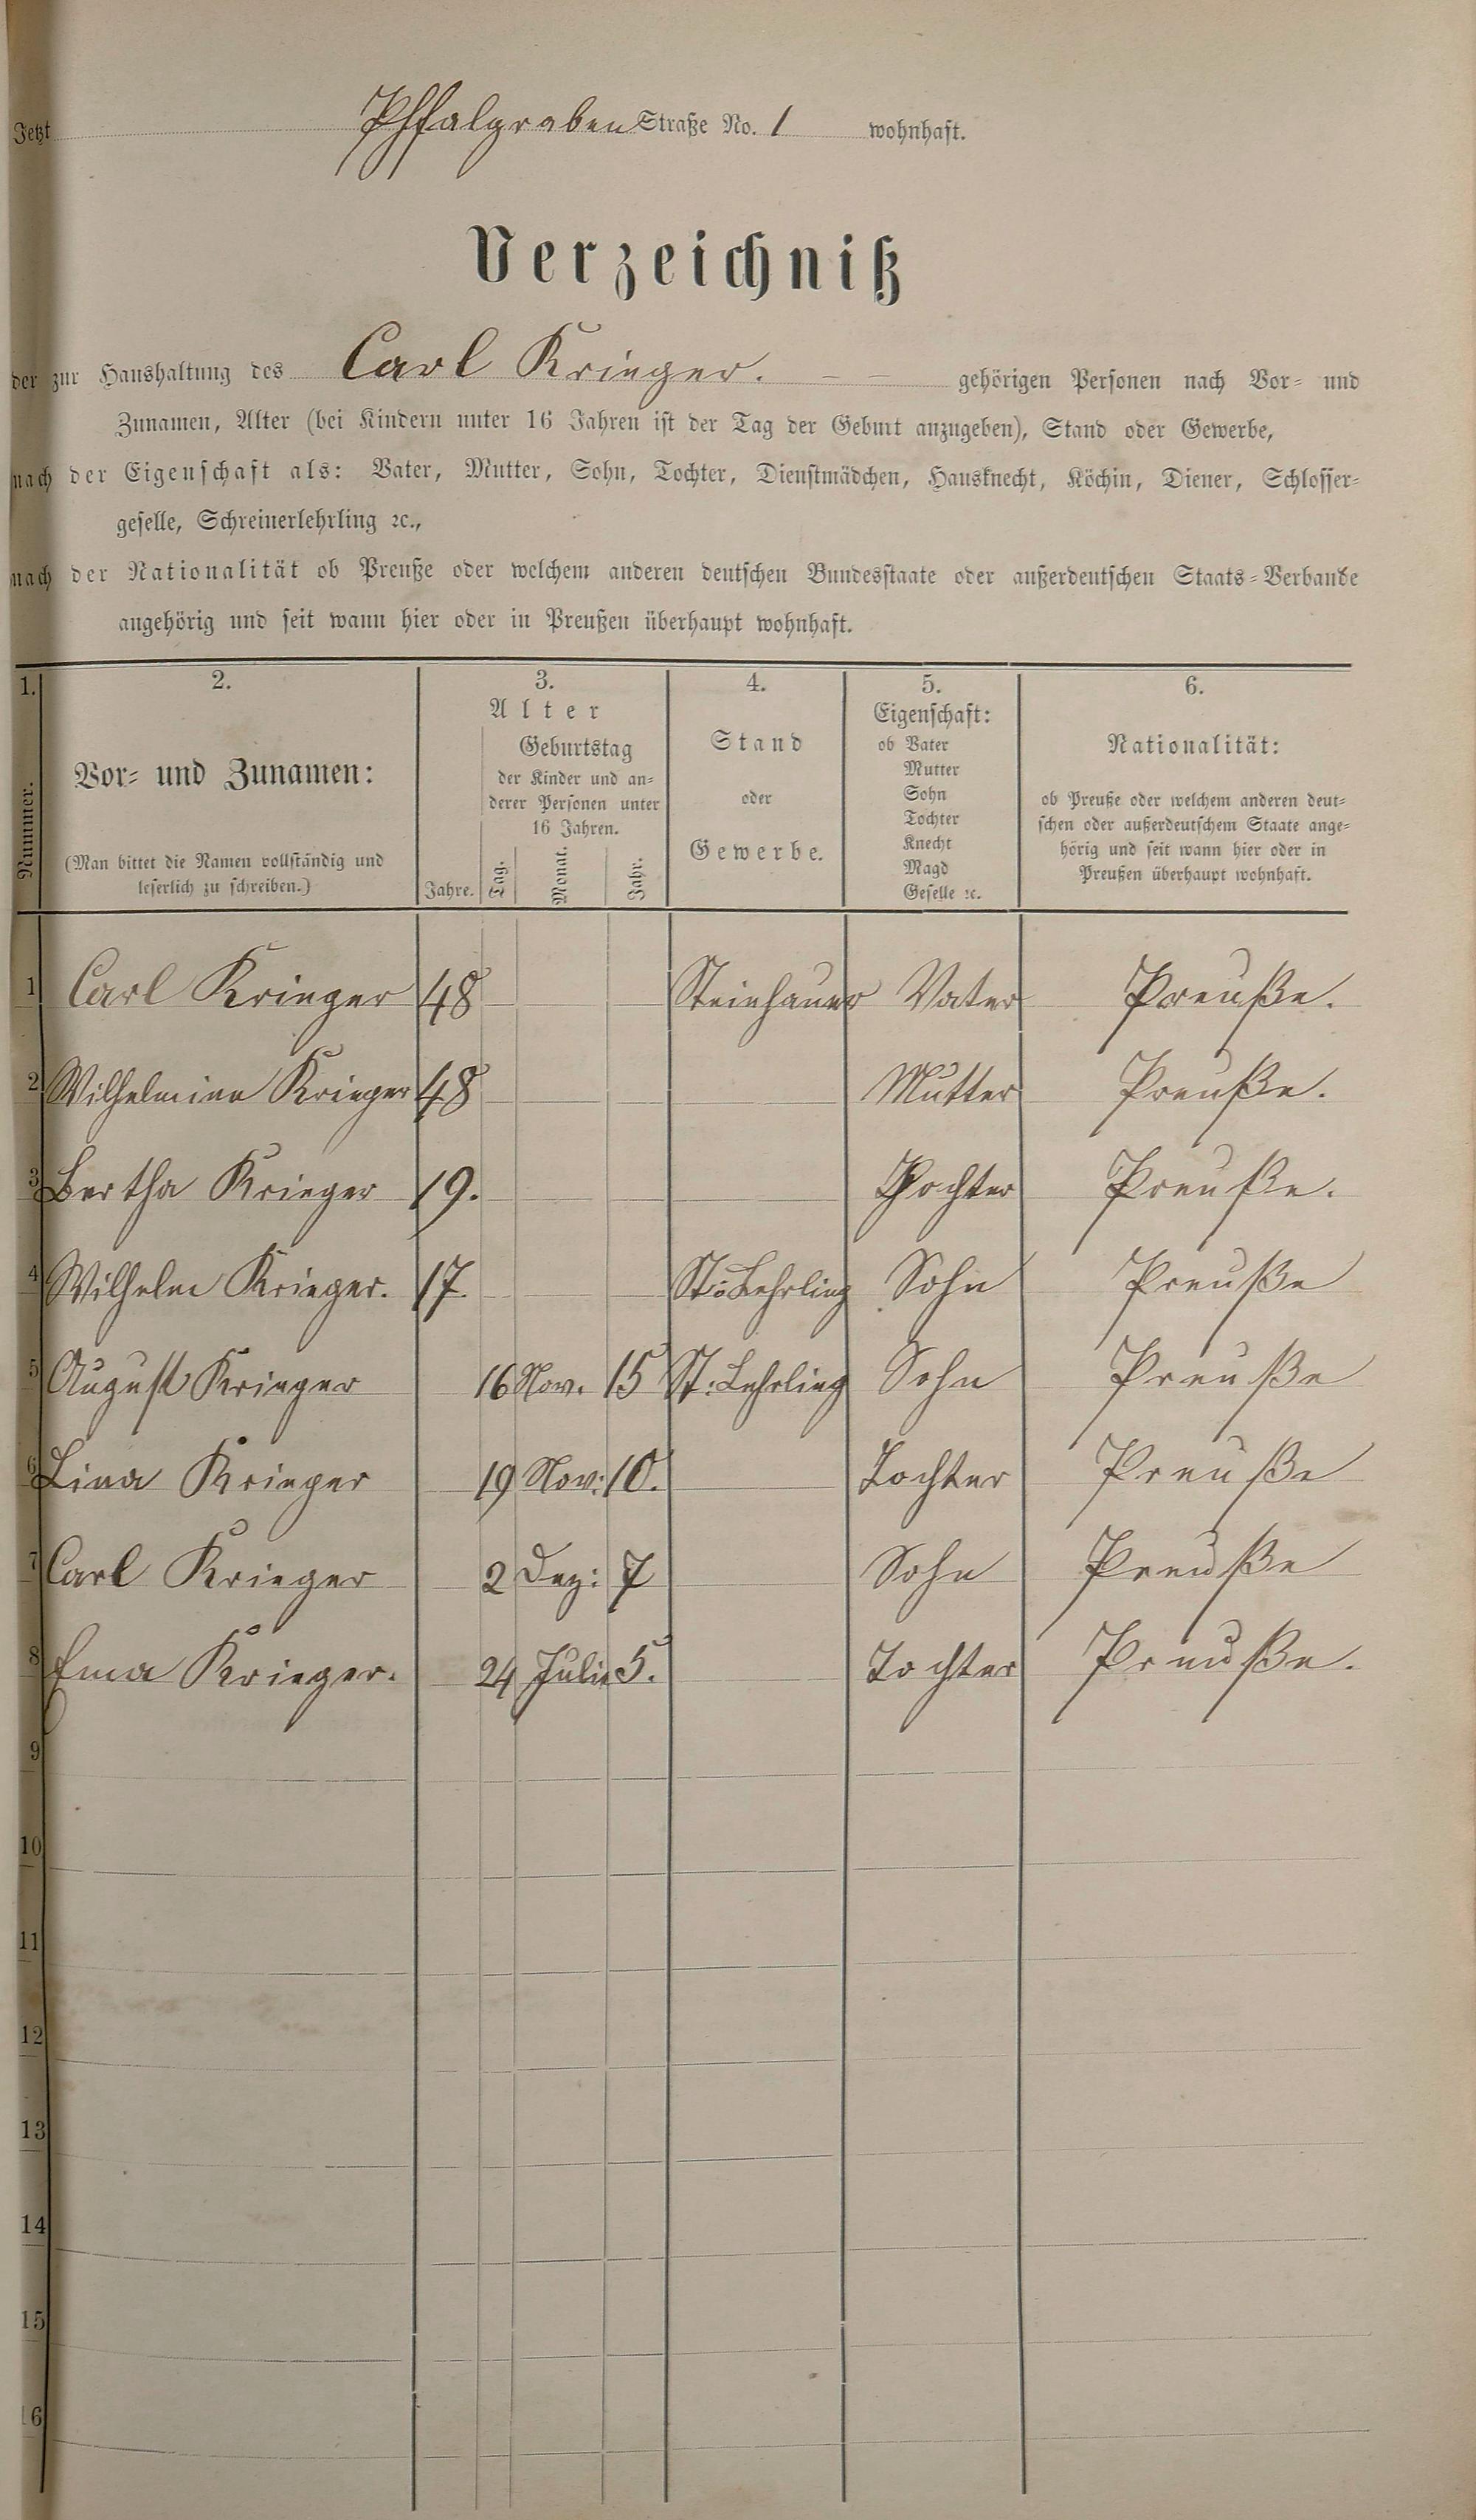 Jetzt Pffalgraben Straße No. 1 wohnhaft.
Verzeichniß
der zur Haushaltung des Carl Krieger. – – gehörigen Personen nach Vor- und
Zunamen, Alter (bei Kindern unter 16 Jahren ist der Tag der Geburt anzugeben), Stand oder Gewerbe,
nach der Eigenschaft als: Vater, Mutter, Sohn, Tochter, Dienstmädchen, Hausknecht, Köchin, Diener, Schlosser-
geselle, Schreinerlehrling ꝛc.,
nach der Nationalität ob Preuße oder welchem anderen deutschen Bundesstaate oder außerdeutschen Staats-Verbande
angehörig und seit wann hier oder in Preußen überhaupt wohnhaft.
1.
Nummer.
2.
Vor- und Zunamen:
(Man bittet die Namen vollständig und
leserlich zu schreiben.)
3.
Alter
Jahre.
Geburtstag
der Kinder und an-
derer Personen unter
16 Jahren.
Tag. Monat. Jahr.
4.
Stand
oder
Gewerbe.
5.
Eigenschaft:
ob Vater
Mutter
Sohn
Tochter
Knecht
Magd
Geselle ꝛc.
6.
Nationalität:
ob Preuße oder welchem anderen deut-
schen oder außerdeutschem Staate ange-
hörig und seit wann hier oder in
Preußen überhaupt wohnhaft.
1 Carl Krieger 48 Steinhauer Vater Preuße.
2 Wilhelmine Krieger 48 Mutter Preuße.
3 Bertha Krieger 19. Tochter Preuße.
4 Wilhelm Krieger. 17. St: Lehrling Sohn Preuße
5 August Krieger 16 Nov. 15 St: Lehrling Sohn Preuße
6 Lina Krieger 19 Nov: 10. Tochter Preuße
7 Carl Krieger 2 Dez: 7 Sohn Preuße
8 Ema Krieger. 24 Julie 5. Tochter Preuße.
9
10
11
12
13
14
15
16